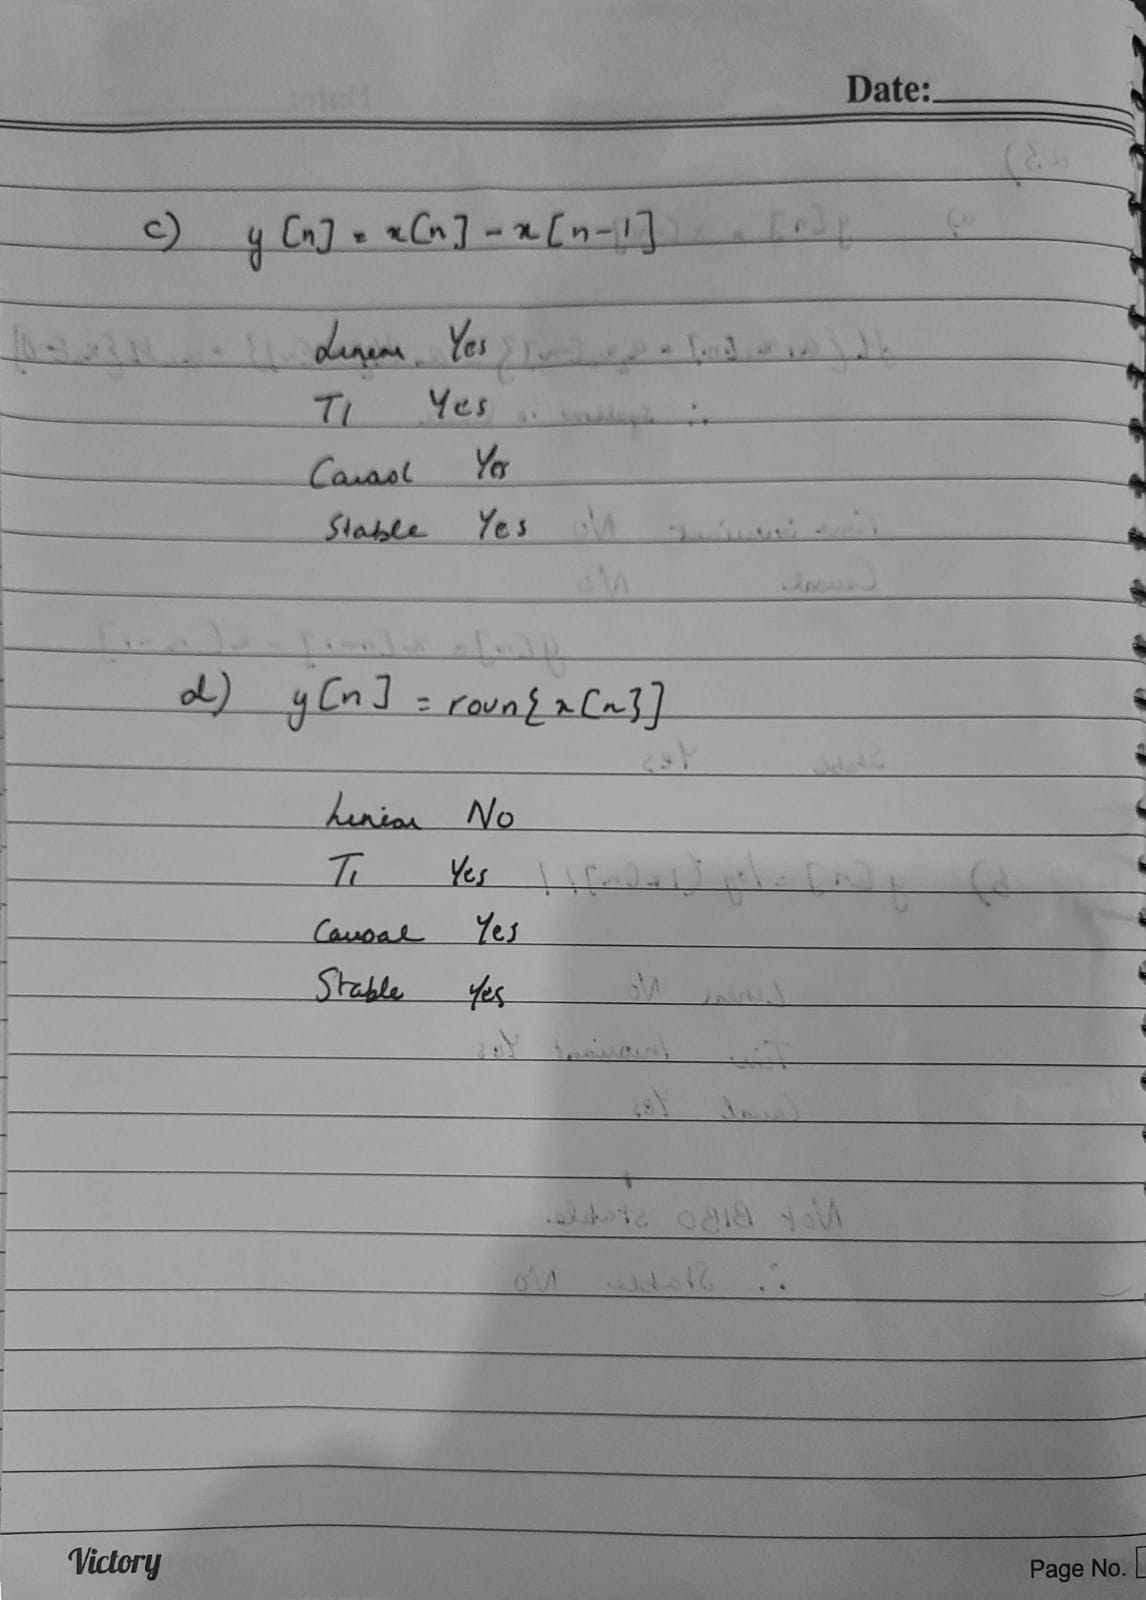 Date:
c) y[n] = x[n] - x[n-1]
Linear Yes
TI Yes
Causal Yes
Stable Yes
d) y[n] = roun{x[n}]
Linear No
TI Yes
Causal Yes
Stable Yes
Victory
Page No.